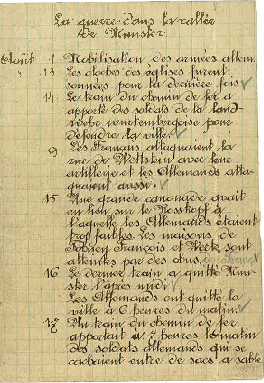 La guerre dans la vallée
de Munster.
Août 1 Mobilisation des armées allem.
" 13 Les cloches des églises furent
sonnées pour la dernière fois
14 Le train du chemin de fer a
apporté des soldats de la land-
wehr wurtembergeoise pour
défendre la ville.
9 Les Français attaquaient la
rue de avec leur
artillerie et les Allemands atta-
quaient aussi.
15 Une grande canonade avait
eu lieu sur le Mosskopf à
laquelle les Allemands étaient
trop faibles. Les maisons de
François et sont
atteintes par des obus.
16 Le dernier train a quitté Mun-
ster l'après midi
Les Allemands ont quitté la
ville à 6 heures du matin.
Un train du chemin de fer
apportait à 7 heures du matin
des soldats allemands qui se
cachaient entre de sacs à sable